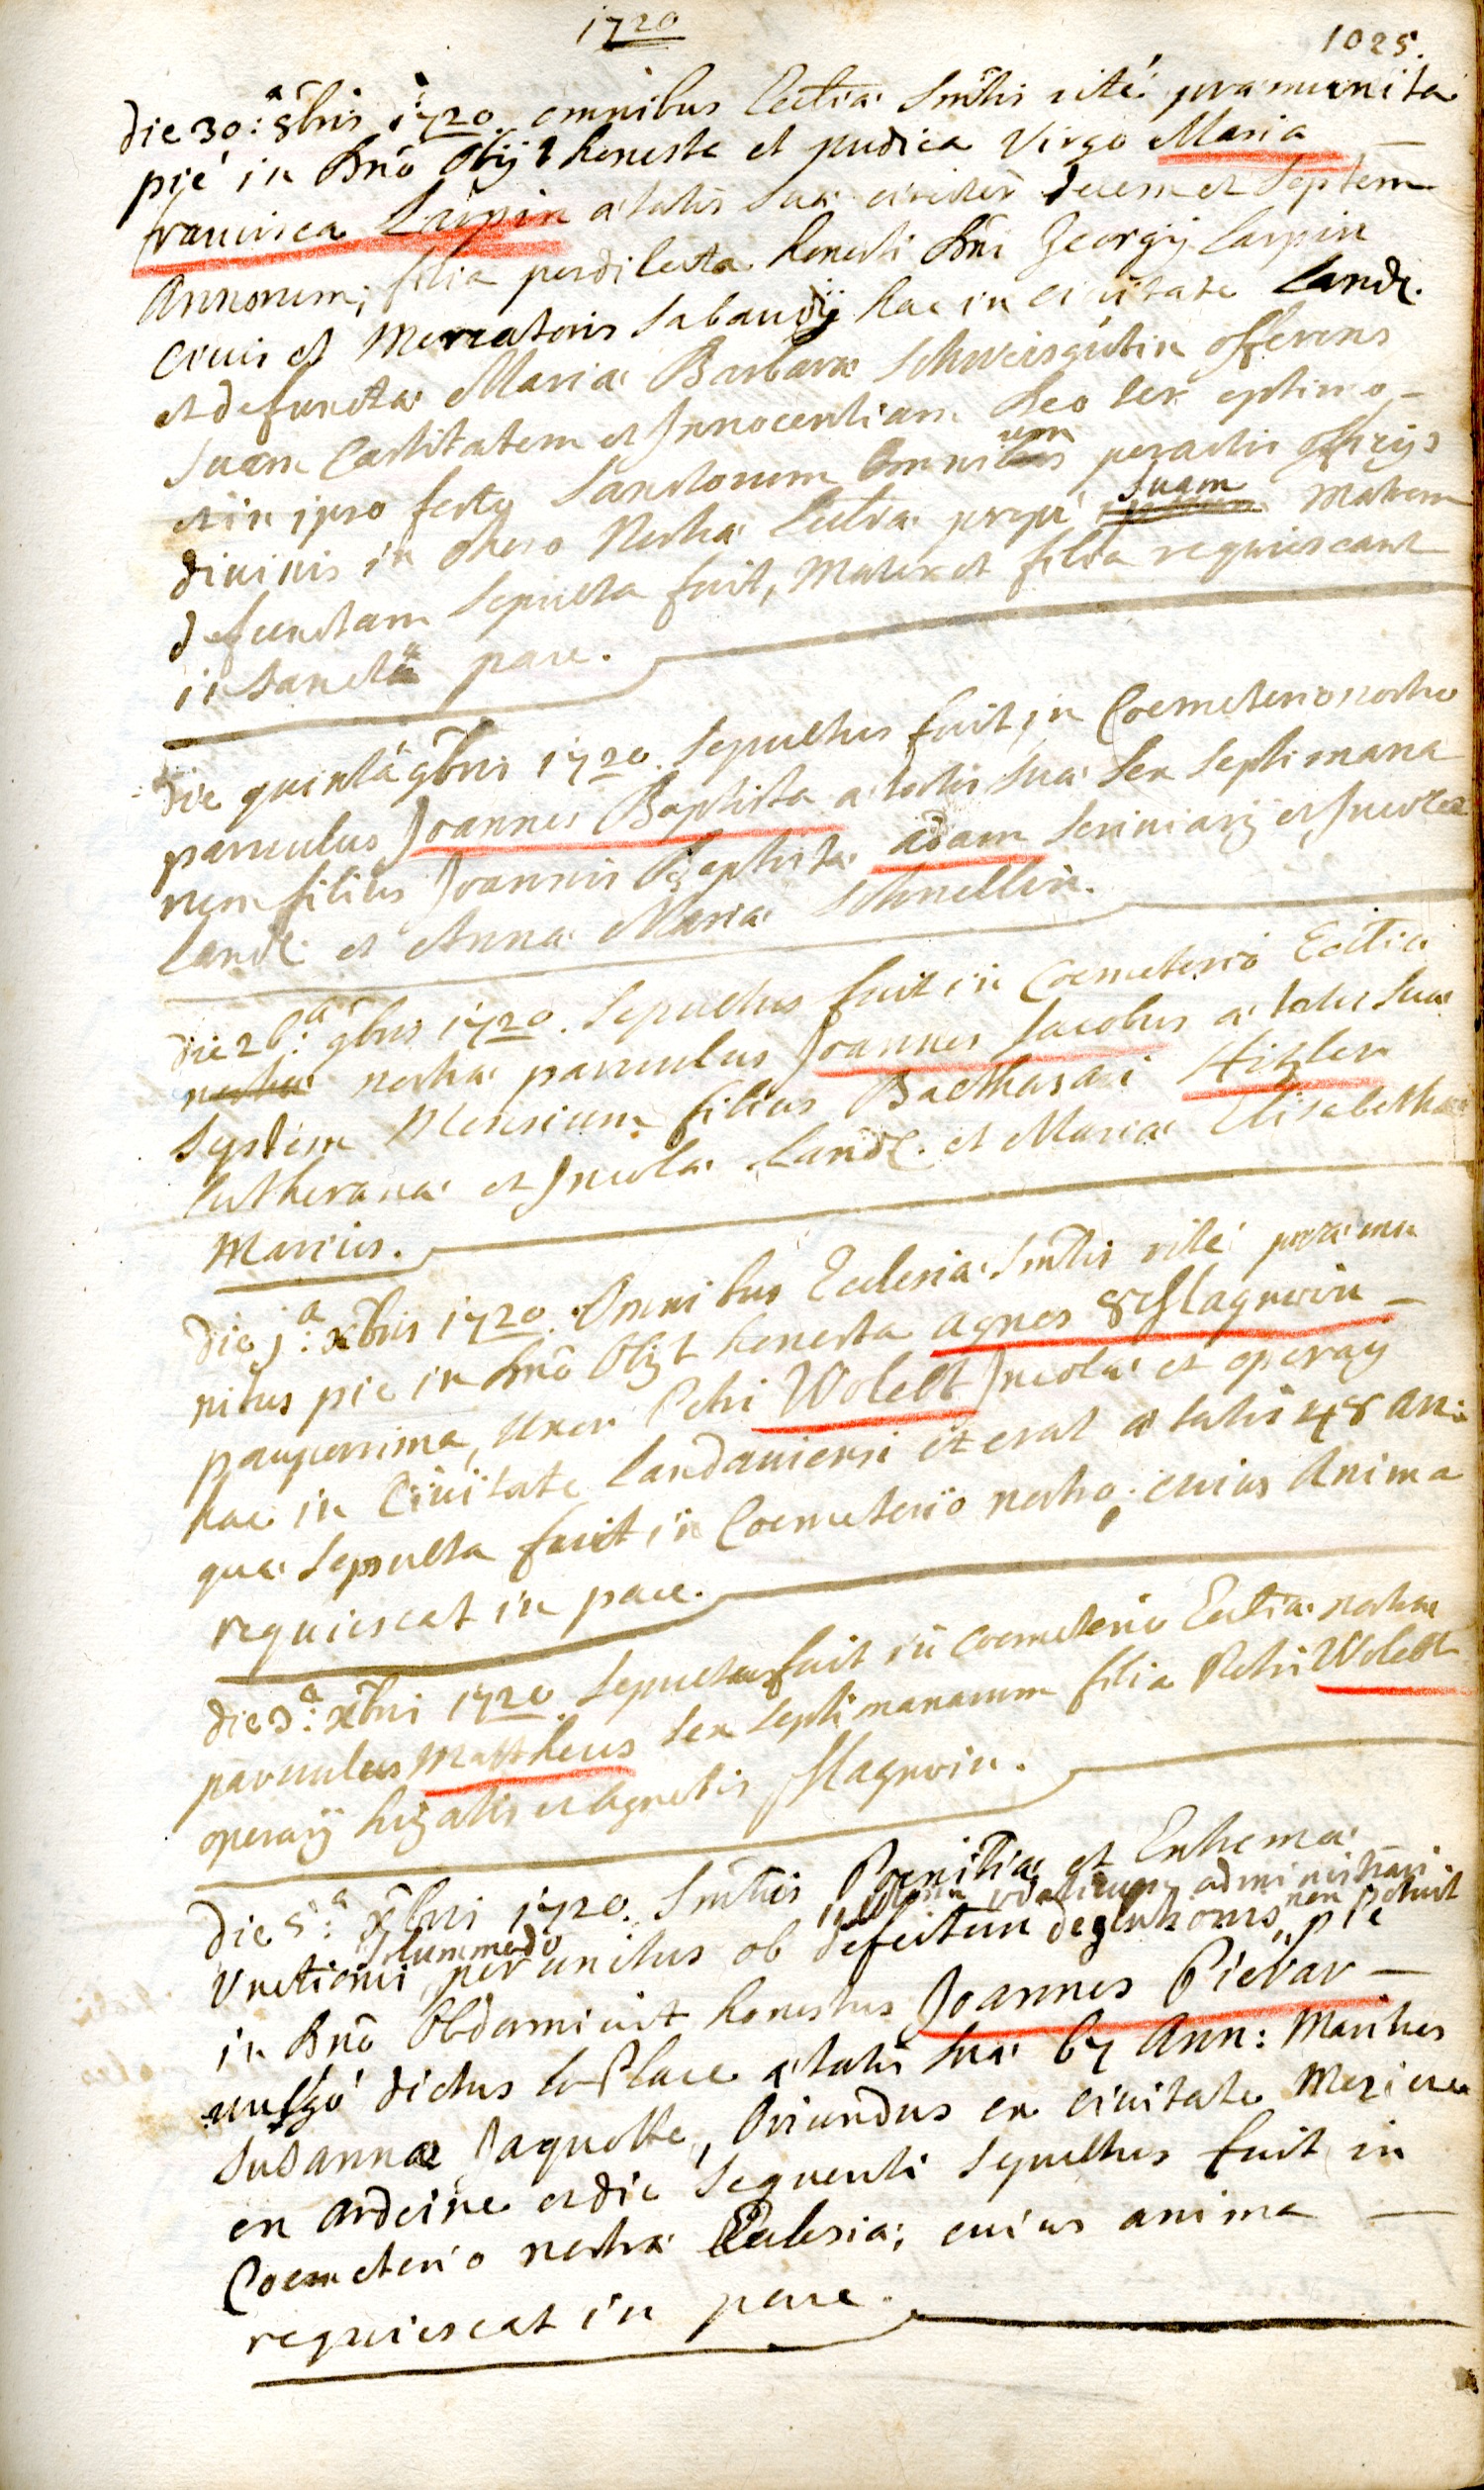 1720
1025.
die 30:a 8bris 1720. omnibus Ecctiæ Smtis rité præmunita
pié in Dno Obijt honesta et pudica Virgo Maria
francisca Larpin ætatis suæ circiter decem et septem
Annorum; filia perdilecta honesti Dni Georgij Larpin
Ciuis et Mercatoris Sabaudij hac in ciuitate Land.
et defunctæ Mariæ Barbaræ Schweisgütin offerens
suam Castitatem et Innocentiam Deo ter optimo
et in ipso festo Sanctorum omnium peractis officijs
diuinis in choro nostræ Ecctiæ propé suam Matrem
defunctam sepulta fuit, Mater et filia requiescant
in sancta pace.
die quintá 9bris 1720. sepultus fuit in Coemeterio nostro
paruulus Joannes Baptista ætatis suæ sex septimana
rum filius Joannis Baptistæ adam scriniarij et Incolæ
Land. et Annæ Mariæ Schnellin.
die 26:a 9bris 1720. sepultus fuit in Coemeterio Ecctiæ
nostræ nostræ paruulus Joannes Jacobus ætatis suæ
septem Mensium filius Balthasari Hizler
lutheranæ et Incolæ Land. et Mariæ Elisabethæ
Marius.
die 1:a xbris 1720. Omnibus Ecclesiæ Smtis rité præmu
nitus pie in Dno Obijt honesta agnes Magnoin
pauperrima, uxor Petri Wolelt Incolæ et operarij
hac in Ciuitate Landauiensi et erat ætatis 48 an:
quæ sepulta fuit in Coemeterio nostro; cuius Anima
requiescat in pace.
die 3:a xbri 1720. sepultus fuit in coemeterio Ecctiæ nostræ
paruulus Mattheus sex septimanarum filia Petri Wolelt
operarij et Agnetis Magnoin.
die 5:a xbri 1720. Smtis Poenitiæ et Extremæ
Viaticum administrari non potuit
Unctionis solummodo præmunitus ob defectum deglutionis pie
in Dno Obdormiuit honestus Joannes Pierar
uulgó dictus la Place ætatis suæ 67 Ann: Maritus
Susannæ Jaquotte, Oriundus ex ciuitate Meziere
en ardeine et die sequenti sepultus fuit in
Coemeterio nostræ Ecclesiæ; cuius anima
requiescat in pace.